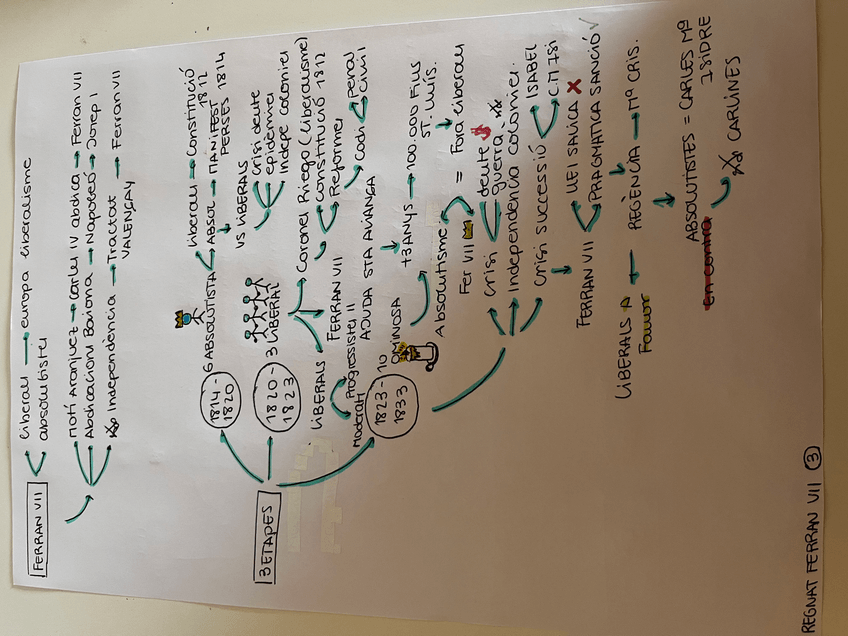 FERRAN VII
liberals
europa liberalisme
absolutistes
Motí Aranjuez
Carles IV abdica
Ferran VII
Abdicacions Baiona
Napoleó
Josep I
Independència
Tractat
VALENÇAY
Ferran VII
3 ETAPES
1814 -
1820
6 ABSOLUTISTA
liberals
Constitució
1812
ABSOL
MANIFEST
PERSES 1814
VS LIBERALS
Crisi deute
epidèmies
Indepe colonies
1820 -
1823
3 LIBERAL
Coronel Riego (liberalisme)
Constitució 1812
Reformes
Codi
Penal
Civil
LIBERALS
FERRAN VII
Progressistes II
Moderats
AJUDA STA ALIANÇA
1823 -
1833
10
OMINOSA
+3 ANYS
100.000 Fills
ST. LLUÍS.
Absolutisme
= Fora liberals
Fer VII
Crisi
deute $
guerra
Independència colonies.
Crisi successió
ISABEL
C.M ISI
FERRAN VII
LLEI SÀLICA X
PRAGMATICA SANCIÓ V
REGÈNCIA
Mª CRIS.
LIBERALS A
Favor
ABSOLUTISTES = CARLES Mª
ISIDRE
en contra
CARLINES
REGNAT FERRAN VII 3